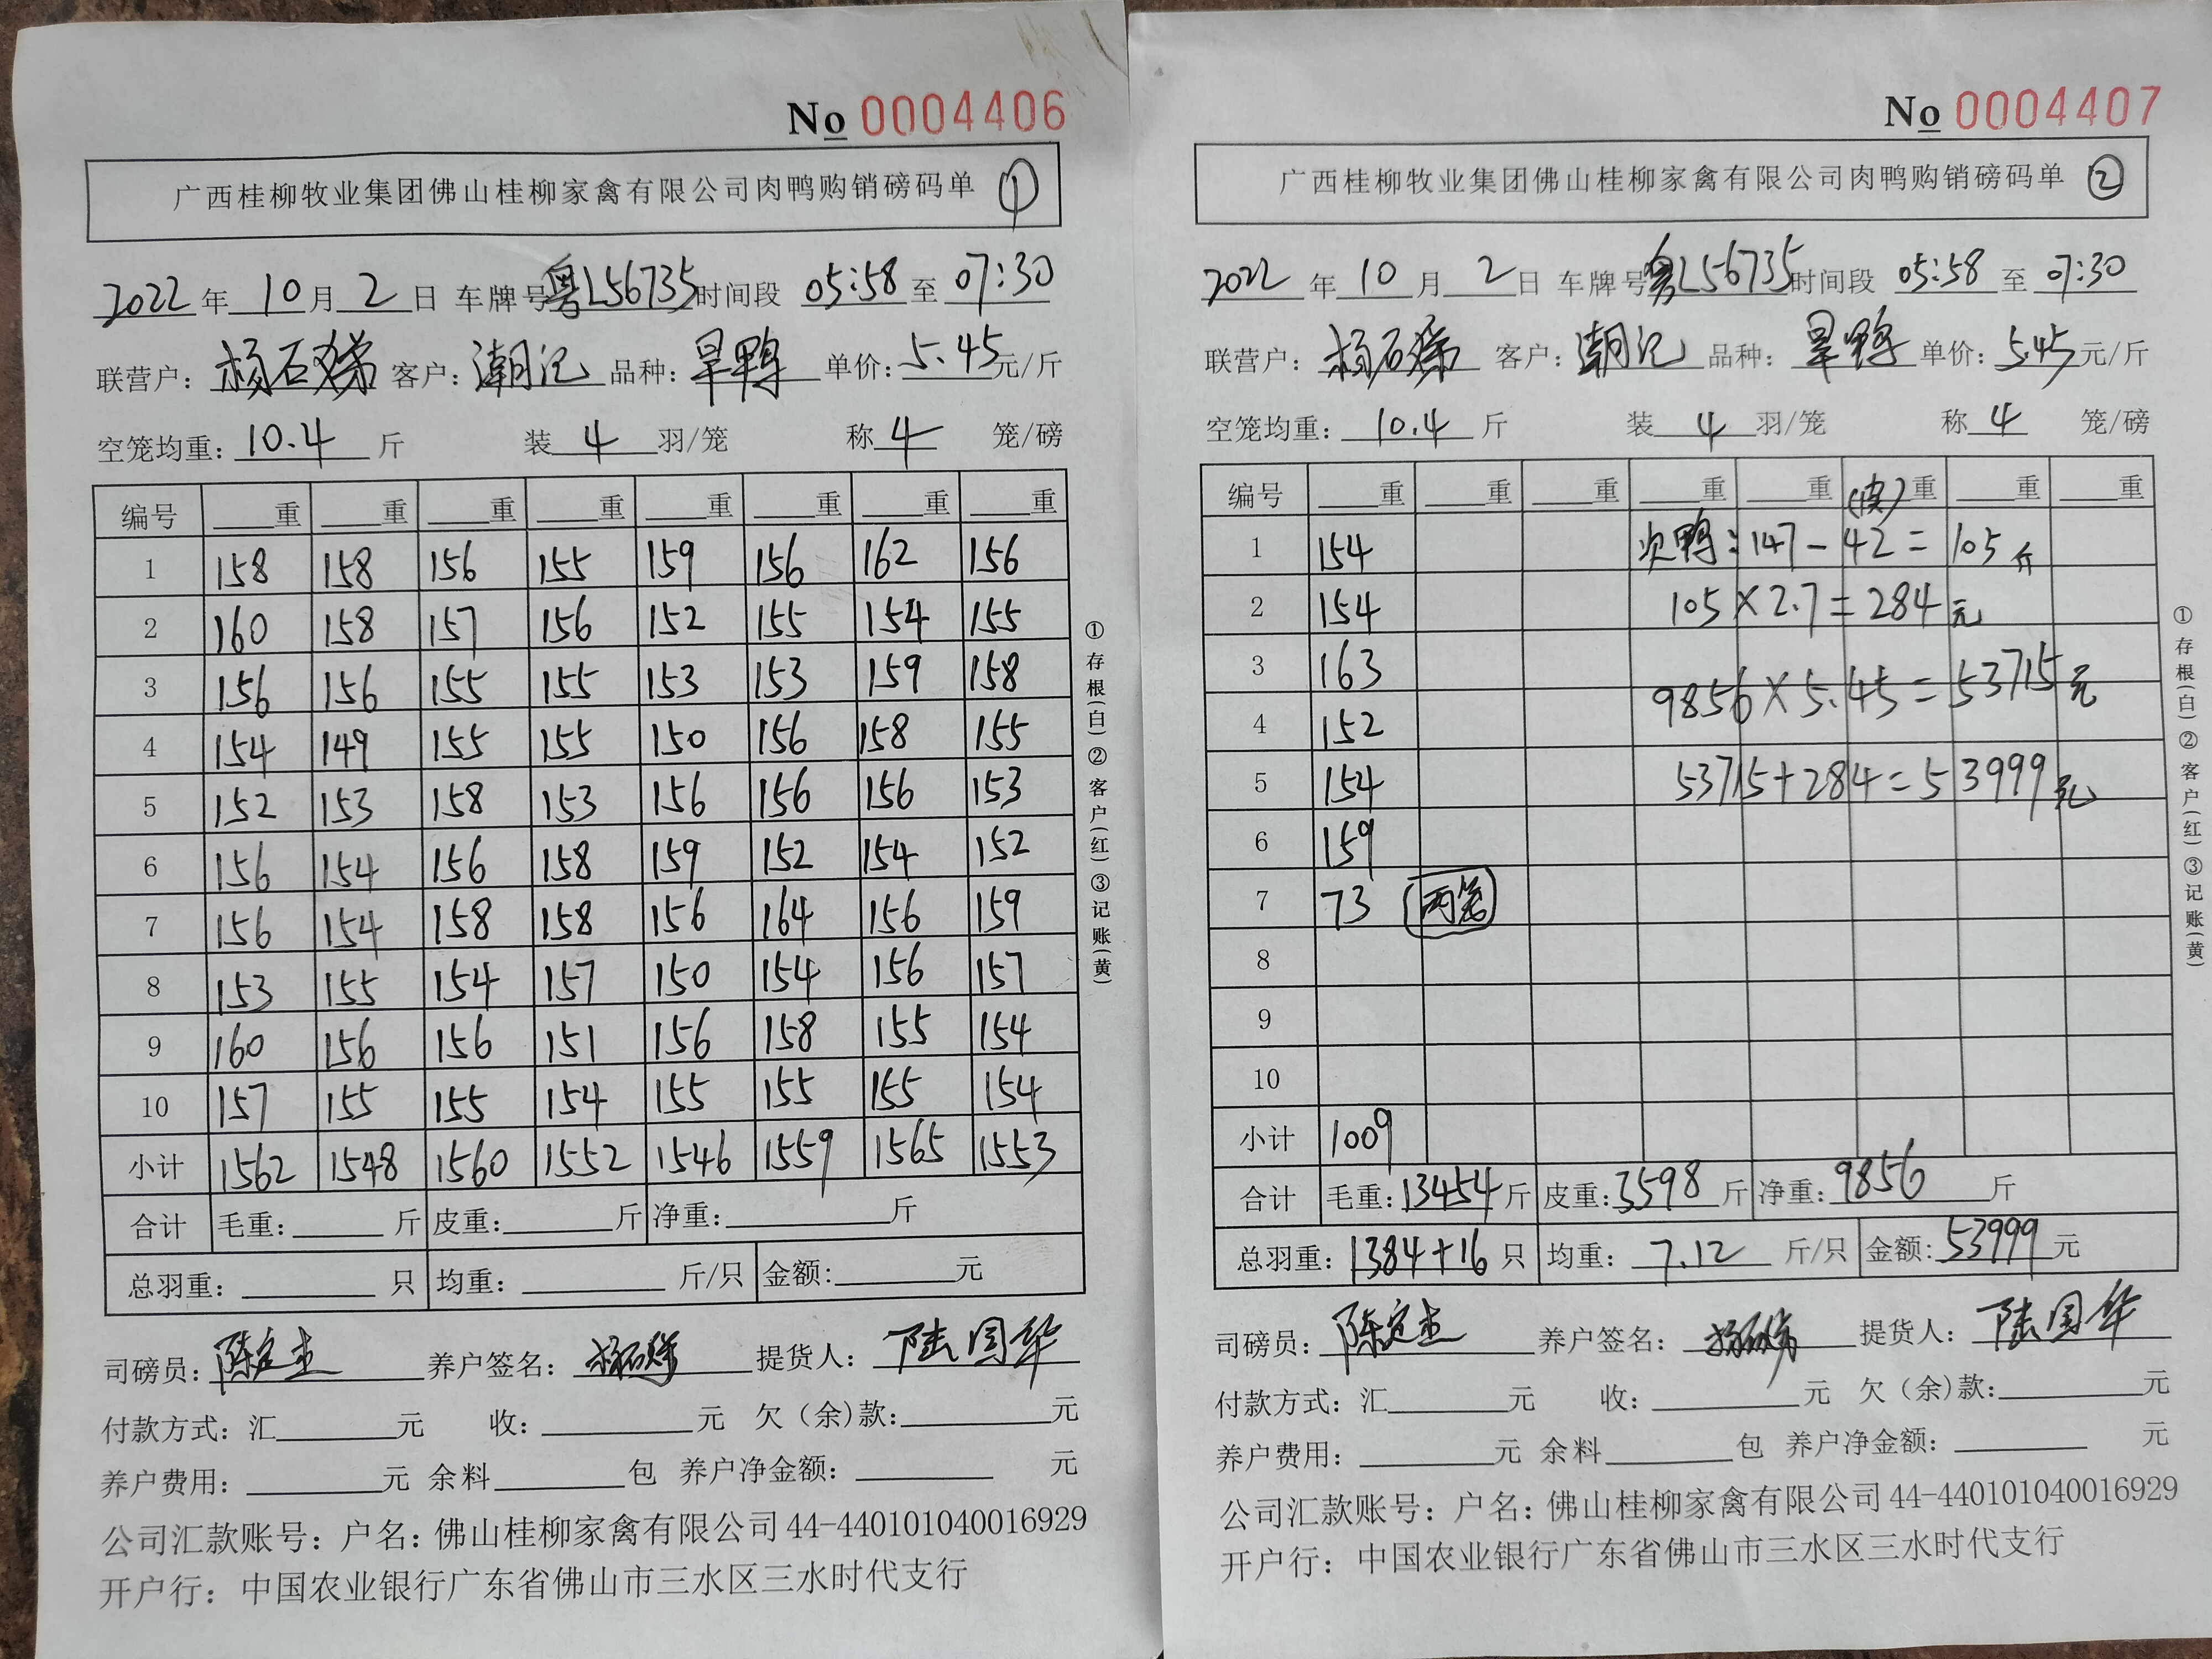 No 0004406
广西桂柳牧业集团佛山桂柳家禽有限公司肉鸭购销磅码单 ①
2022 年 10 月 2 日 车牌号 粤L56735 时间段 05:58 至 07:30
联营户: 杨石娣 客户: 潮记 品种: 旱鸭 单价: 5.45 元/斤
空笼均重: 10.4 斤 装 4 羽/笼 称 4 笼/磅
编号 重 重 重 重 重 重 重 重
1 158 158 156 155 159 156 162 156
2 160 158 157 156 152 155 154 155
3 156 156 155 155 153 153 159 158
4 154 149 155 155 150 156 158 155
5 152 153 158 153 156 156 156 153
6 156 154 156 158 159 152 154 152
7 156 154 158 158 156 164 156 159
8 153 155 154 157 150 154 156 157
9 160 156 156 151 156 158 155 154
10 157 155 155 154 155 155 155 154
小计 1562 1548 1560 1552 1546 1559 1565 1553
合计 毛重: 斤 皮重: 斤 净重: 斤
总羽重: 只 均重: 斤/只 金额: 元
司磅员: 陈定杰 养户签名: 提货人: 陆国华
付款方式: 汇 元 收: 元 欠(余)款: 元
养户费用: 元 余料 包 养户净金额: 元
公司汇款账号: 户名: 佛山桂柳家禽有限公司 44-440101040016929
开户行: 中国农业银行广东省佛山市三水区三水时代支行
①存根(白)②客户(红)③记账(黄)
No 0004407
广西桂柳牧业集团佛山桂柳家禽有限公司肉鸭购销磅码单 ②
2022 年 10 月 2 日 车牌号 粤L56735 时间段 05:58 至 07:30
联营户: 杨石娣 客户: 潮记 品种: 旱鸭 单价: 5.45 元/斤
空笼均重: 10.4 斤 装 4 羽/笼 称 4 笼/磅
编号 重 重 重 重 重 重 重 重
1 154 次鸭: 147-42=105斤
2 154 105×2.7=284元
3 163 9856×5.45=53715元
4 152
5 154 53715+284=53999元
6 159
7 73 两笼
8
9
10
小计 1009
合计 毛重: 13454 斤 皮重: 3598 斤 净重: 9856 斤
总羽重: 1384+16 只 均重: 7.12 斤/只 金额: 53999 元
司磅员: 陈定杰 养户签名: 提货人: 陆国华
付款方式: 汇 元 收: 元 欠(余)款: 元
养户费用: 元 余料 包 养户净金额: 元
公司汇款账号: 户名: 佛山桂柳家禽有限公司 44-440101040016929
开户行: 中国农业银行广东省佛山市三水区三水时代支行
①存根(白)②客户(红)③记账(黄)